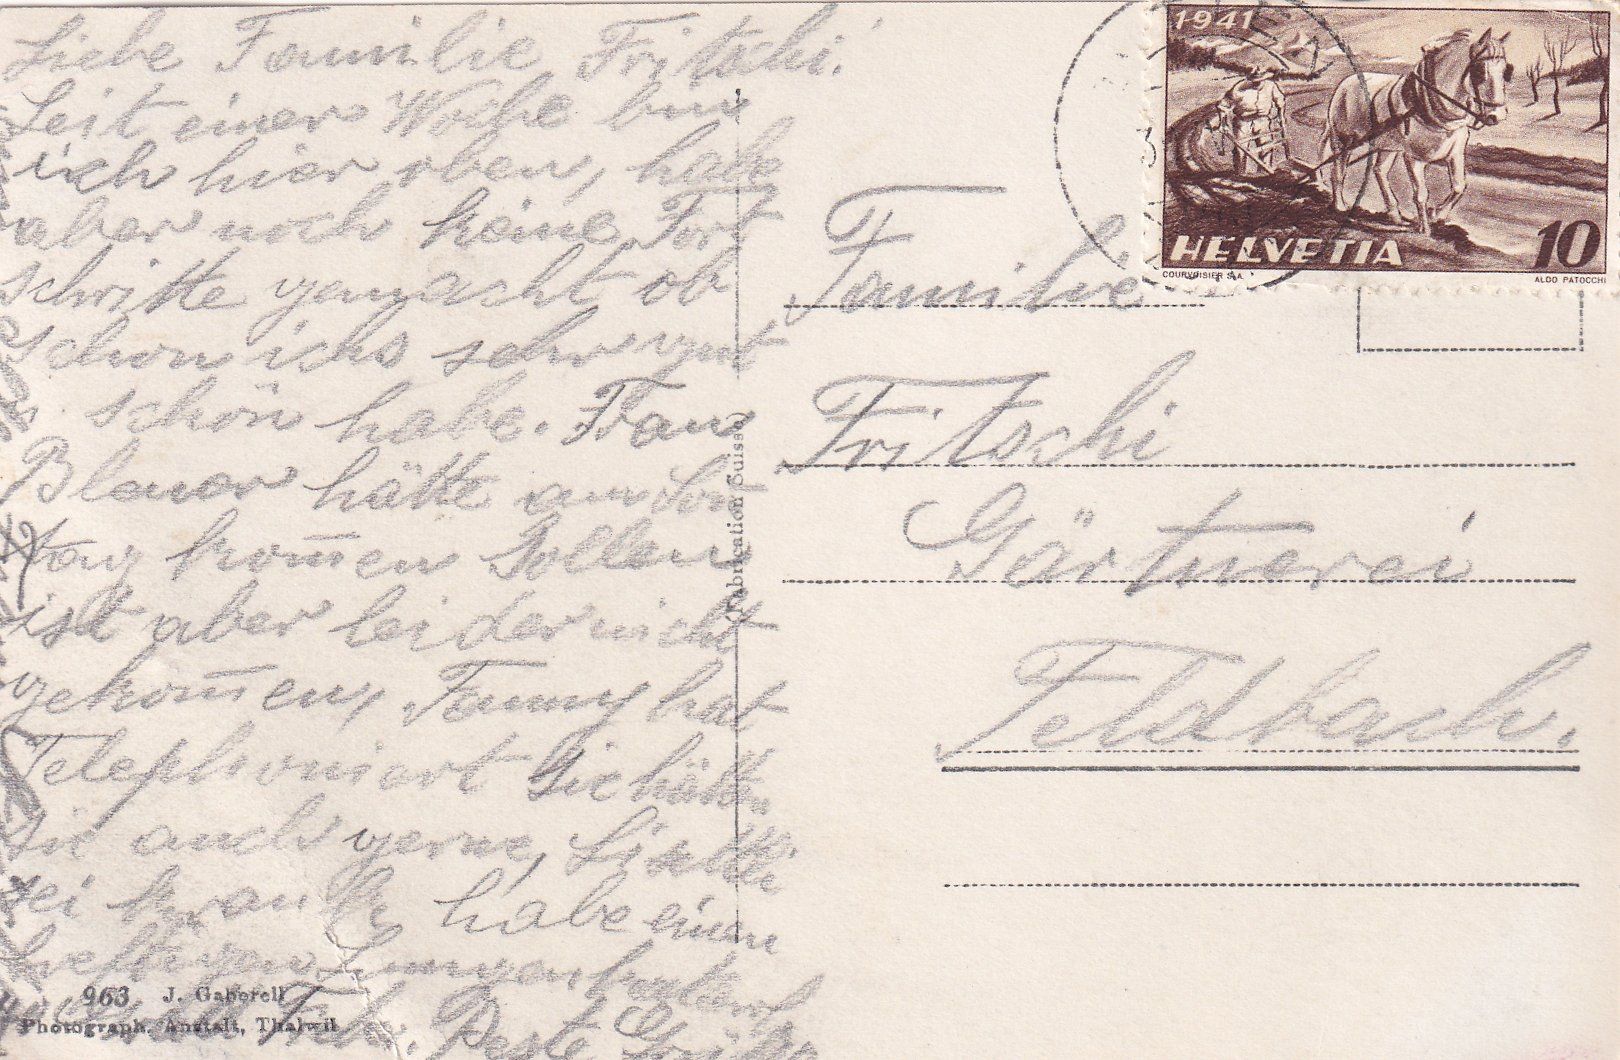 Liebe Familie Fritschi!
Seit einer Woche bin
ich hier oben, habe
aber noch keine Fort
schritte gemacht ob
schon ichs sehr gut
schön habe. Frau
hätte am Son
tag kom̄en sollen
ist aber leider nicht
gekom̄en, Fanny hat
Telephoniert Sie hätten
sie auch gerne,
sei krank, habe einen
heftigen Lungen
Beste Grüße
963 J. Gaberell
Photograph. Anstalt, Thalwil
Fabrication Suisse
1941
HELVETIA
10
COURVOISIER S.A.
ALDO PATOCCHI
Familie
Fritschi
Gärtnerei
Feldbach.